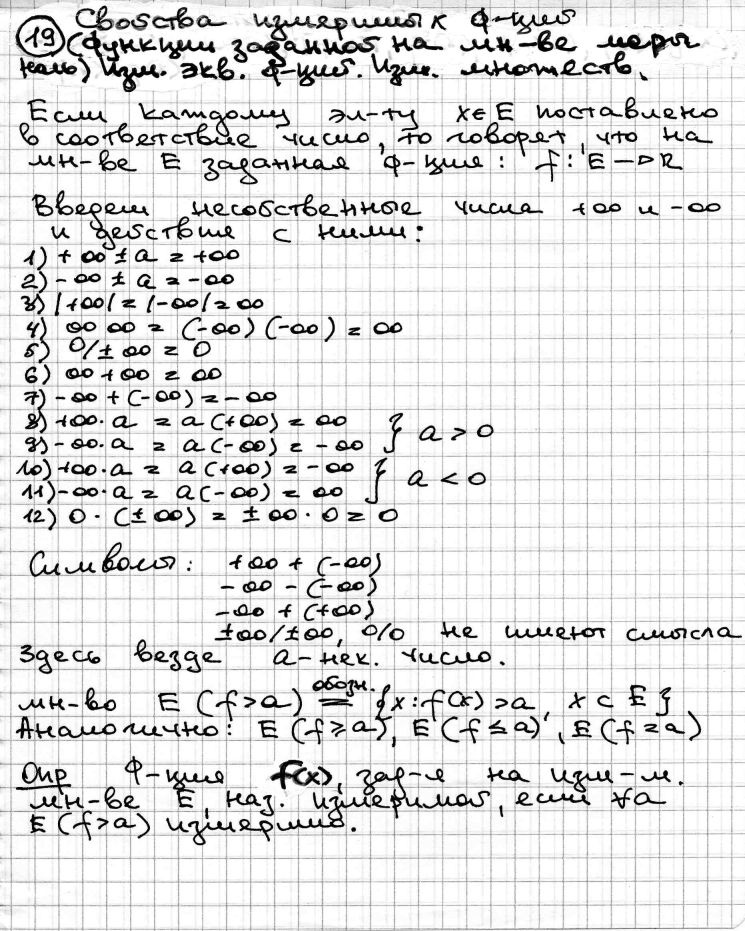 Свойства измеримых ф-ций
19 (функции заданной на мн-ве меры
ноль) Изм. экв. ф-ций. Изм. множеств.
Если каждому эл-ту x∈E поставлено
в соответствие число, то говорят, что на
мн-ве E заданная ф-ция: f: E → R
Введем несобственные числа +∞ и -∞
и действия с ними:
1) +∞ ± a = +∞
2) -∞ ± a = -∞
3) |+∞| = |-∞| = ∞
4) ∞ ∞ = (-∞)(-∞) = ∞
5) 0/±∞ = 0
6) ∞ + ∞ = ∞
7) -∞ + (-∞) = -∞
8) +∞·a = a(+∞) = ∞
9) -∞·a = a(-∞) = -∞ } a > 0
10) +∞·a = a(+∞) = -∞
11) -∞·a = a(-∞) = ∞ } a < 0
12) 0·(±∞) = ±∞·0 = 0
Символы: +∞ + (-∞)
-∞ - (-∞)
-∞ + (+∞)
±∞/±∞, 0/0 не имеют смысла
Здесь везде a - нек. число.
мн-во E(f>a) обозн. = {x: f(x)>a, x ⊂ E}
Аналогично: E(f≥a), E(f≤a), E(f=a)
Опр Ф-ция f(x), зад-я на изм-м.
мн-ве E, наз. измеримой, если ∀a
E(f>a) измеримо.